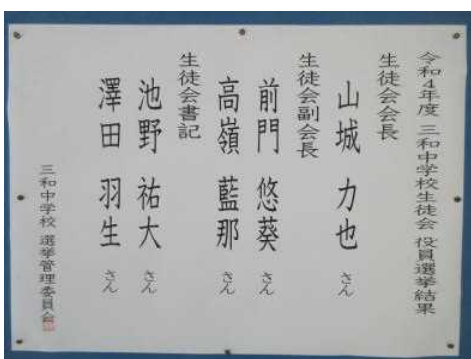 令和4年度 三和中学校生徒会 役員選挙結果
生徒会会長
山城 力也 さん
生徒会副会長
前門 悠葵 さん
高嶺 藍那 さん
生徒会書記
池野 祐大 さん
澤田 羽生 さん
三和中学校 選挙管理委員会